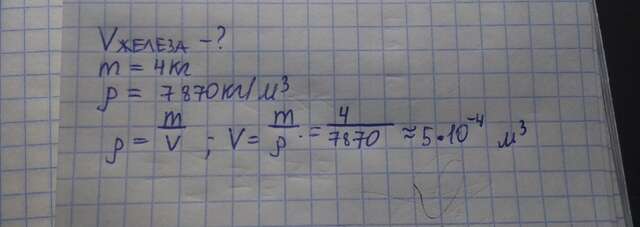 V ЖЕЛЕЗА - ?
m = 4 кг
ρ = 7870 кг/м³
ρ = m/V ; V = m/ρ = 4/7870 ≈ 5•10⁻⁴ м³